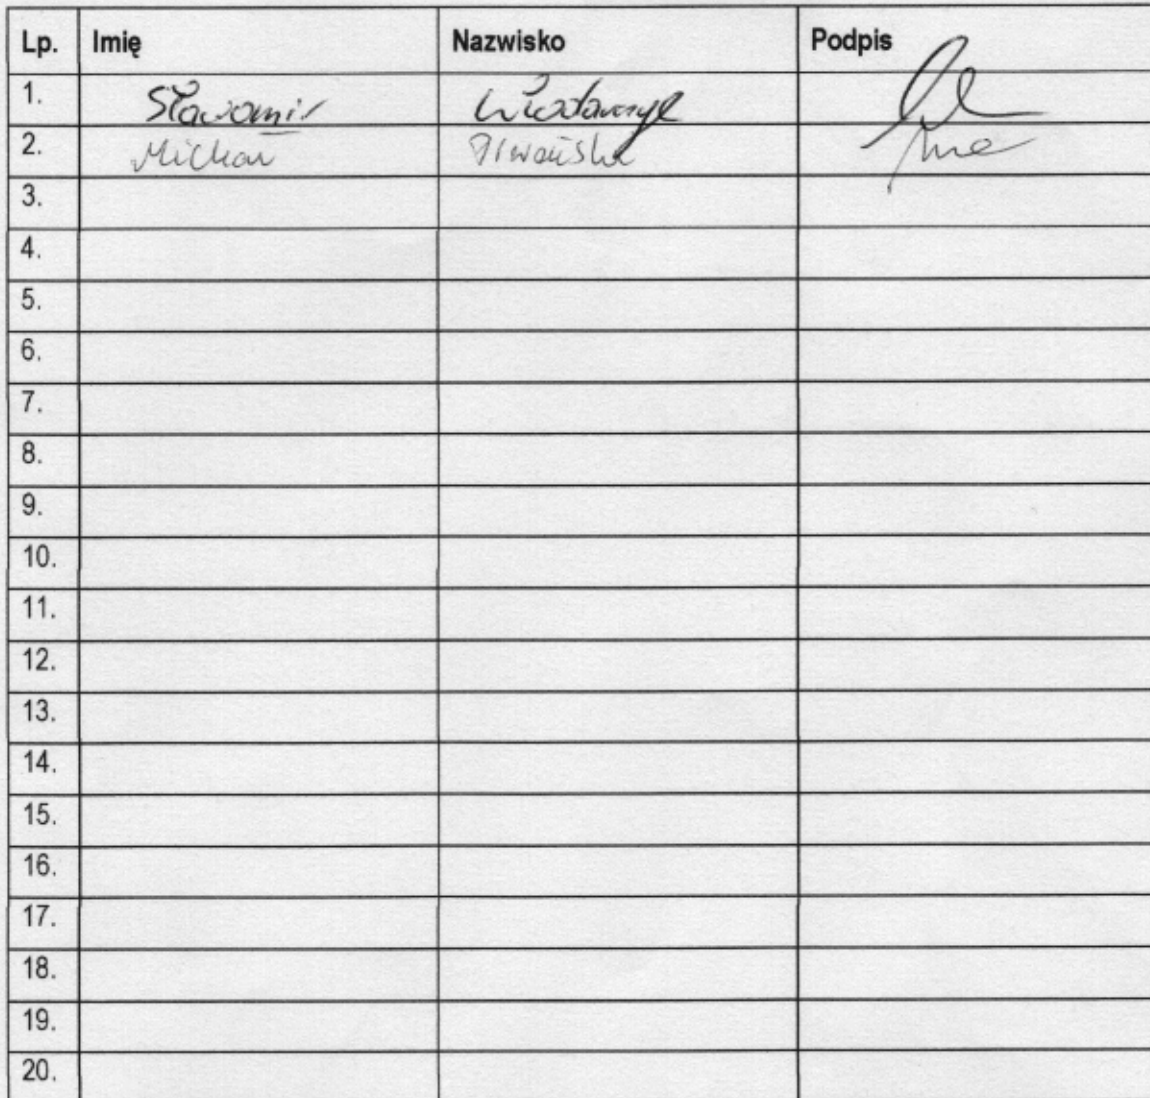 Lp. Imię Nazwisko Podpis
1. Sławomir Włodarczyk
2. Michał
3.
4.
5.
6.
7.
8.
9.
10.
11.
12.
13.
14.
15.
16.
17.
18.
19.
20.